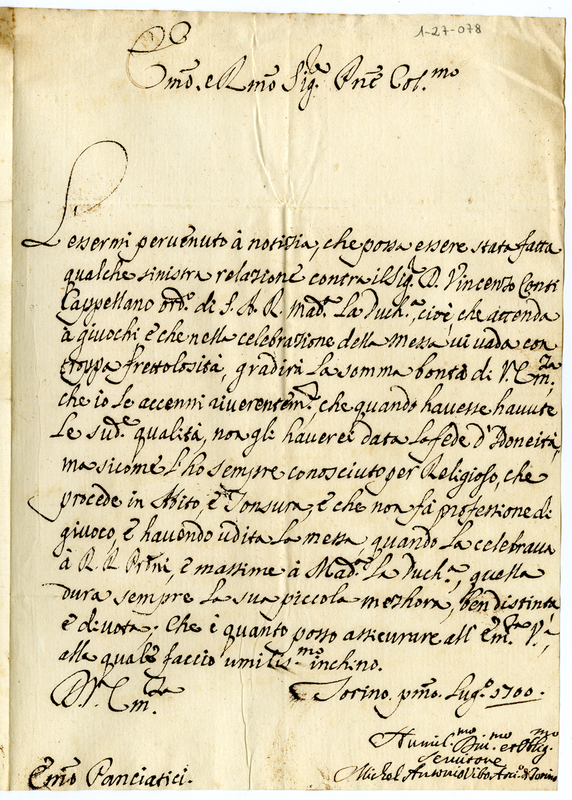 1-27-078
Em̃o. e Rm̃o Sig.re Pne Col.mo
L'essermi pervenuto à notizia, che possa essere stata fatta
qualche sinistra relazione contra il Sig.r D. Vincenzo Conti
Cappellano ord.o di S. A. R. Mad.a La Duch.a, cioè, che attenda
à giuochi è che nella celebrazione della Messa, vi vada con
troppa frettolosità, gradirà La somma bontà di V. Em.za
che io Le accenni riverentem.te, che quando havesse havute
Le sud.e qualità, non gli haverei data La fede d'Idoneità,
ma sicome l'ho sempre conosciuto per Religioso, che
procede in Abito, è Tonsura, è che non fà professione di
giuoco, è havendo udita La messa, quando La celebrava
à R. R. Prñi, è massime à Mad.a La Duch.a, quella
dura sempre La sua piccola mezhora, ben distinta
è divota; Che è quanto posso assicurare all' Em.za V.a,
alla quale faccio umilis.mo inchino.
D. V. Em.za Torino pm̃o Lug.o 1700.
Humil.mo Div.mo et Oblig.mo
Servitore
Michel Antonio Vibo Arci.o di Torino
Em̃o Panciatici.